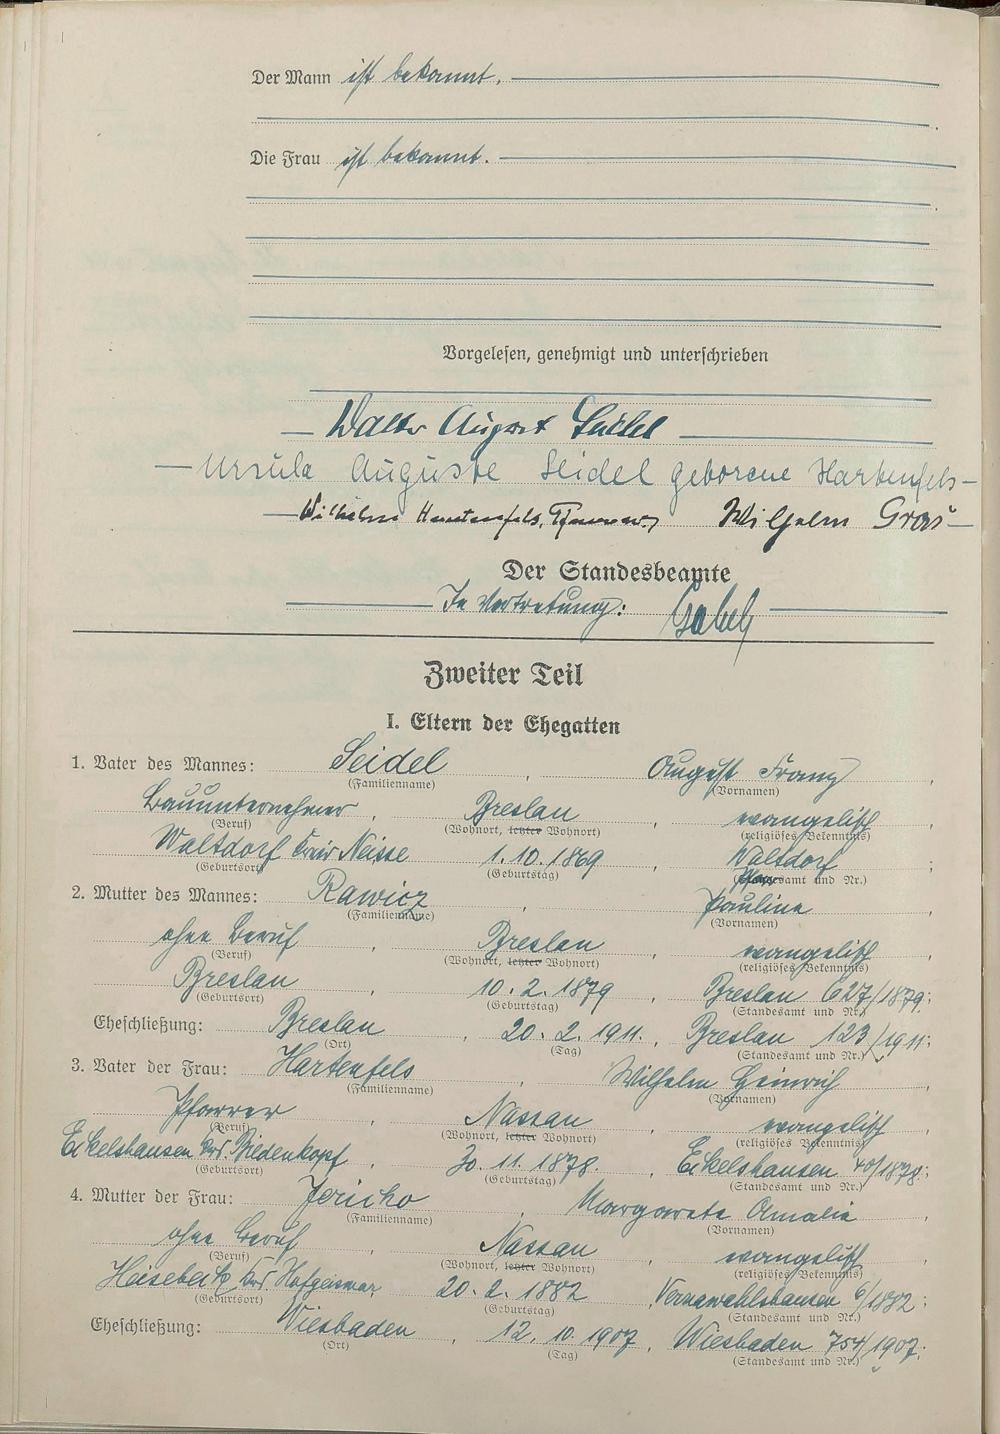 Der Mann ist bekannt.
Die Frau ist bekannt.
Vorgelesen, genehmigt und unterschrieben
Walter August Seidel
Ursula Auguste Seidel geborene Hartenfels
Wilhelm Hartenfels, Pfarrer, Wilhelm
Der Standesbeamte
In Vertretung:
Zweiter Teil
I. Eltern der Ehegatten
1. Vater des Mannes: Seidel, August Franz,
(Familienname) (Vornamen)
Bauunternehmer, Breslau, evangelisch,
(Beruf) (Wohnort, letzter Wohnort) (religiöses Bekenntnis)
Waltdorf Kreis Neisse 1.10.1869, Waltdorf;
(Geburtsort) (Geburtstag) (amt und Nr.)
2. Mutter des Mannes: Rawicz, Pauline,
(Familienname) (Vornamen)
ohne Beruf, Breslau, evangelisch,
(Beruf) (Wohnort, letzter Wohnort) (religiöses Bekenntnis)
Breslau, 10.2.1879, Breslau 627/1879;
(Geburtsort) (Geburtstag) (Standesamt und Nr.)
Eheschließung: Breslau, 20.2.1911., Breslau 123/1911;
(Ort) (Tag) (Standesamt und Nr.)
3. Vater der Frau: Hartenfels, Wilhelm Heinrich,
(Familienname) (Vornamen)
Pfarrer, Nassau, evangelisch,
(Beruf) (Wohnort, letzter Wohnort) (religiöses Bekenntnis)
Eckelshausen Krs. Biedenkopf, 30.11.1878., Eckelshausen 40/1878;
(Geburtsort) (Geburtstag) (Standesamt und Nr.)
4. Mutter der Frau: Jericho, Margarete Amalie,
(Familienname) (Vornamen)
ohne Beruf, Nassau, evangelisch,
(Beruf) (Wohnort, letzter Wohnort) (religiöses Bekenntnis)
Heisebeck Krs. Hofgeismar 20.2.1882, Vernawahlshausen 6/1882;
(Geburtsort) (Geburtstag) (Standesamt und Nr.)
Eheschließung: Wiesbaden, 12.10.1907, Wiesbaden 754/1907;
(Ort) (Tag) (Standesamt und Nr.)